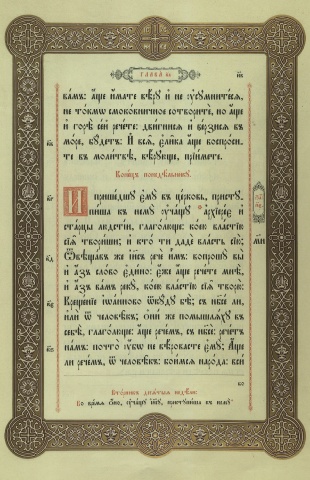 ГЛАВА к҃а
ва́мъ: а҆́ще и҆́мате вѣ́рꙋ и҆ не ᲂу҆сꙋмните́сѧ,
не то́кмѡ смоко́вничное сотворитѐ, но а҆́ще
и҆ горѣ̀ се́й рече́те: дви́гнисѧ и҆ ве́рзисѧ въ
мо́ре, бꙋ́детъ: И҆ всѧ̑, є҆ли̑ка а҆́ще воспро́си-
те въ моли́твѣ, вѣ́рꙋюще, прїи́мете.
Коне́цъ понедѣ́льникꙋ.
И҆ прише́дшꙋ є҆мꙋ̀ въ це́рковь, пристꙋ-
пи́ша къ немꙋ̀ ᲂу҆ча́щꙋ * а҆рхїере́є и҆
ста́рцы людсті́и, глаго́люще: ко́ею вла́стїю
сїѧ̑ твори́ши; и҆ кто́ ти дадѐ вла́сть сїю̀;
Ѿвѣща́въ же і҆и҃съ речѐ и҆̀мъ: вопрошꙋ́ вы
и҆ а҆́зъ сло́во є҆ди́но: є҆́же а҆́ще рече́те мнѣ̀,
и҆ а҆́зъ ва́мъ рекꙋ̀, ко́ею вла́стїю сїѧ̑ творю̀:
Креще́нїе і҆ѡа́нново ѿкꙋ́дꙋ бѣ̀; съ нб҃сѐ ли,
и҆лѝ ѿ человѣ̑къ; Ѻ҆ни́ же помышлѧ́хꙋ въ
себѣ̀, глаго́люще: а҆́ще рече́мъ, съ нб҃сѐ: рече́тъ
на́мъ: почто̀ ᲂу҆̀бо не вѣ́ровасте є҆мꙋ̀; А҆́ще
ли рече́мъ, ѿ человѣ̑къ: бои́мсѧ наро́да: вси́
бо
Вто́рникъ десѧ́тыѧ недѣ́ли:
Во вре́мѧ ѻ҆́но, ᲂу҆ча́щꙋ і҆и҃сꙋ, пристꙋпи́ша къ немꙋ̀